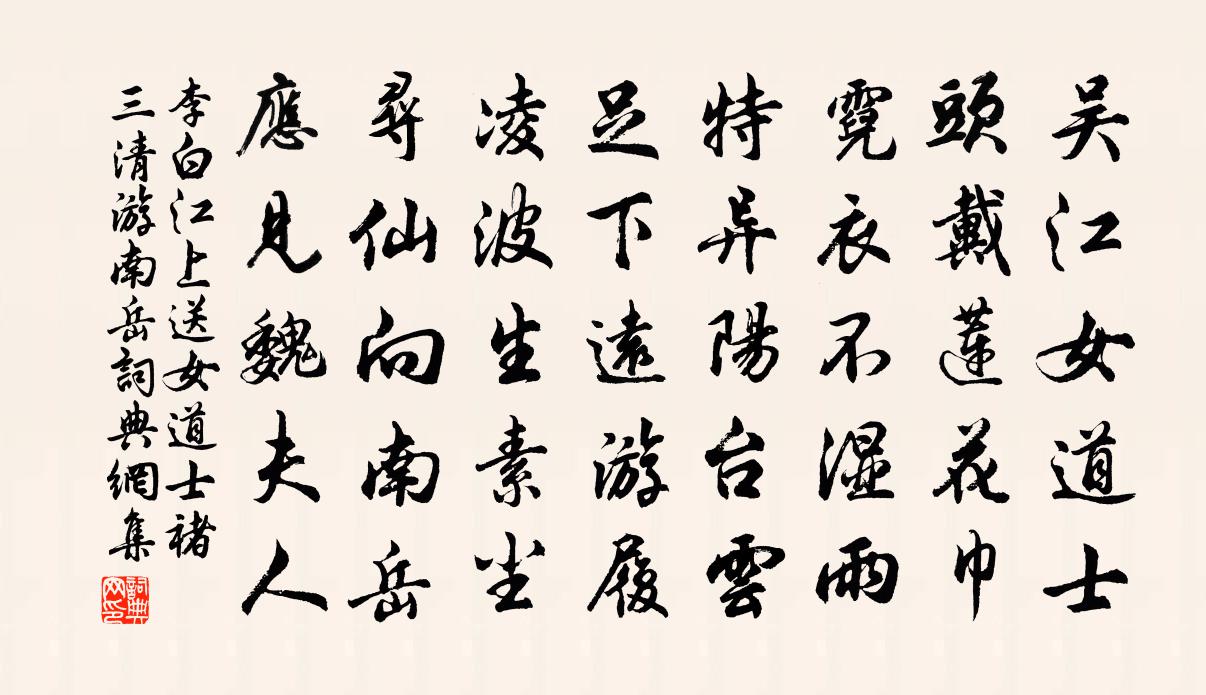 吴江女道士
頭戴蓮花巾
霓衣不湿雨
特异陽台雲
足下遠游履
凌波生素尘
尋仙向南岳
應見魏夫人
李白江上送女道士褚
三清游南岳詞典網集
詞典
网印